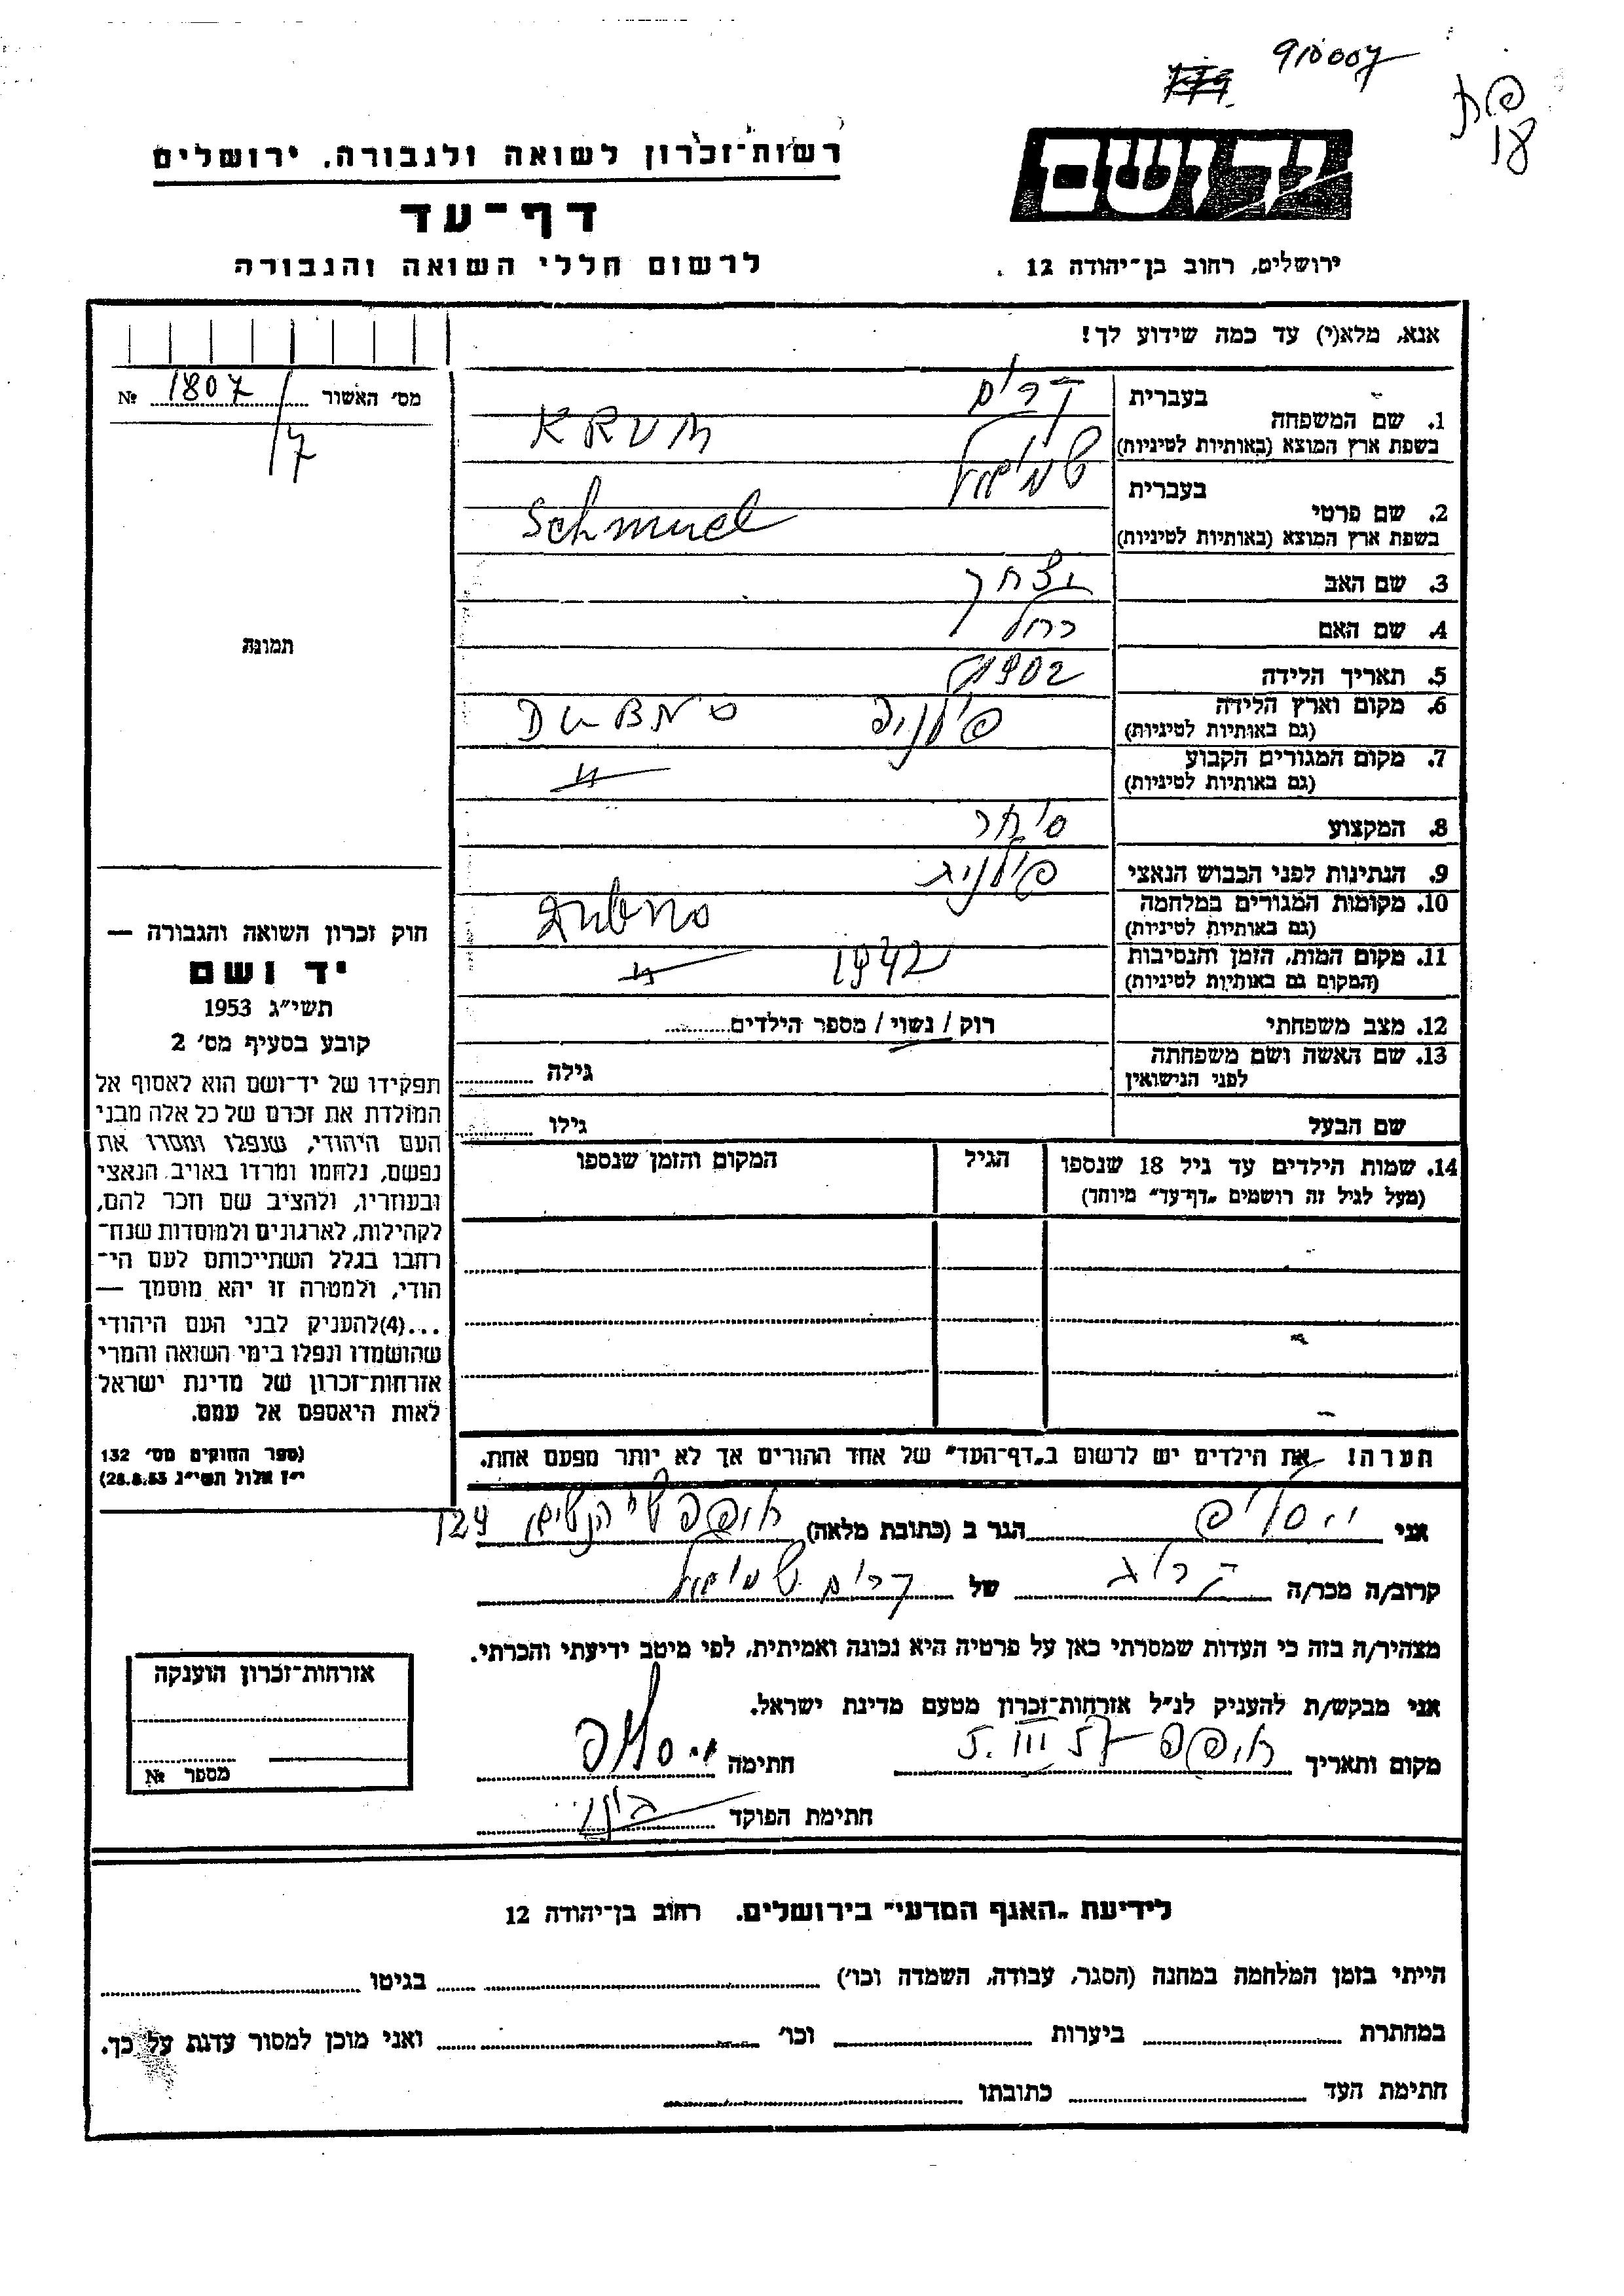 910007
פת
18
יד ושם
ירושלים, רחוב בן־יהודה 12
רשות־זכרון לשואה ולגבורה, ירושלים
דף־עד
לרשום חללי השואה והגבורה
אנא, מלא(י) עד כמה שידוע לך!
מס׳ האשור 1807 №
17
בעברית קרים
1. שם המשפחה
בשפת ארץ המוצא (באותיות לטיניות) KRUM
בעברית שמואל
2. שם פרטי
בשפת ארץ המוצא (באותיות לטיניות) Schmuel
3. שם האב יצחק
4. שם האם רחל
5. תאריך הלידה 1902
6. מקום וארץ הלידה
(גם באותיות לטיניות) DUBNO
7. מקום המגורים הקבוע
(גם באותיות לטיניות) "
8. המקצוע סוחר
9. הנתינות לפני הכבוש הנאצי
10. מקומות המגורים במלחמה
(גם באותיות לטיניות) Dubno
11. מקום המות, הזמן והנסיבות
(המקום גם באותיות לטיניות) 1942 "
12. מצב משפחתי רוק / נשוי / מספר הילדים
13. שם האשה ושם משפחתה
לפני הנישואין גילה
שם הבעל גילו
14. שמות הילדים עד גיל 18 שנספו הגיל המקום והזמן שנספו
(מעל לגיל זה רושמים „דף־עד״ מיוחד)
הערה! את הילדים יש לרשום ב„דף־העד״ של אחד ההורים אך לא יותר מפעם אחת.
תמונת
חוק זכרון השואה והגבורה —
יד ושם
תשי״ג 1953
קובע בסעיף מס׳ 2
תפקידו של יד־ושם הוא לאסוף אל
המולדת את זכרם של כל אלה מבני
העם היהודי, שנפלו ומסרו את
נפשם, נלחמו ומרדו באויב הנאצי
ובעוזריו, ולהציב שם וזכר להם,
לקהילות, לארגונים ולמוסדות שנח־
רחבו בגלל השתייכותם לעם הי־
הודי, ולמטרה זו יהא מוסמך —
...(4) להעניק לבני העם היהודי
שהושמדו ונפלו בימי השואה והמרי
אזרחות־זכרון של מדינת ישראל
לאות היאספם אל עמם.
(ספר החוקים מס׳ 132
י״ז אלול תשי״ג 28.8.53)
אני הגר ב (כתובת מלאה) 124
קרוב/ה מכר/ה קרוב של קרים שמואל
מצהיר/ה בזה כי העדות שמסרתי כאן על פרטיה היא נכונה ואמיתית, לפי מיטב ידיעתי והכרתי.
אני מבקש/ת להעניק לנ״ל אזרחות־זכרון מטעם מדינת ישראל.
מקום ותאריך 5.III.57 חתימה
חתימת הפוקד
אזרחות־זכרון הוענקה
מספר №
לידיעת „האגף המדעי״ בירושלים. רחוב בן־יהודה 12
הייתי בזמן המלחמה במחנה (הסגר, עבודה, השמדה וכו׳) בגיטו
במחתרת ביערות וכו׳ ואני מוכן למסור עדות על כך.
חתימת העד כתובתו